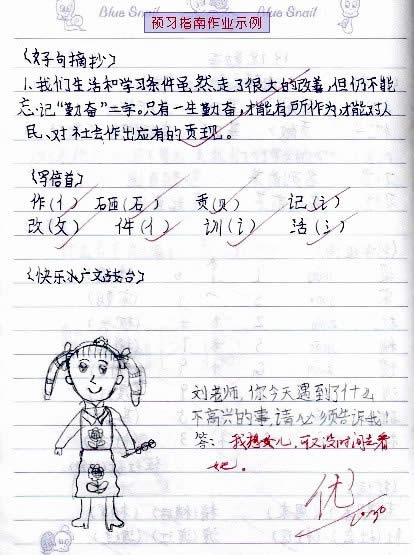 Blue Snail
Blue Snail
预习指南作业示例
《好句摘抄》
1.我们生活和学习条件虽然走了很大的改善,但仍不能
忘记“勤奋”二字。只有一生勤奋,才能有所作为才能对人
民、对社会作出应有的贡现。
《写偏首》
作(亻) 砸(石) 贡(贝) 记(讠)
改(攵) 件(亻) 训(讠) 活(氵)
《快乐小广文站台》
刘老师,你今天遇到了什么
不高兴的事,请必须告诉我!
答:我想女儿,可又没时间去看
她。
优